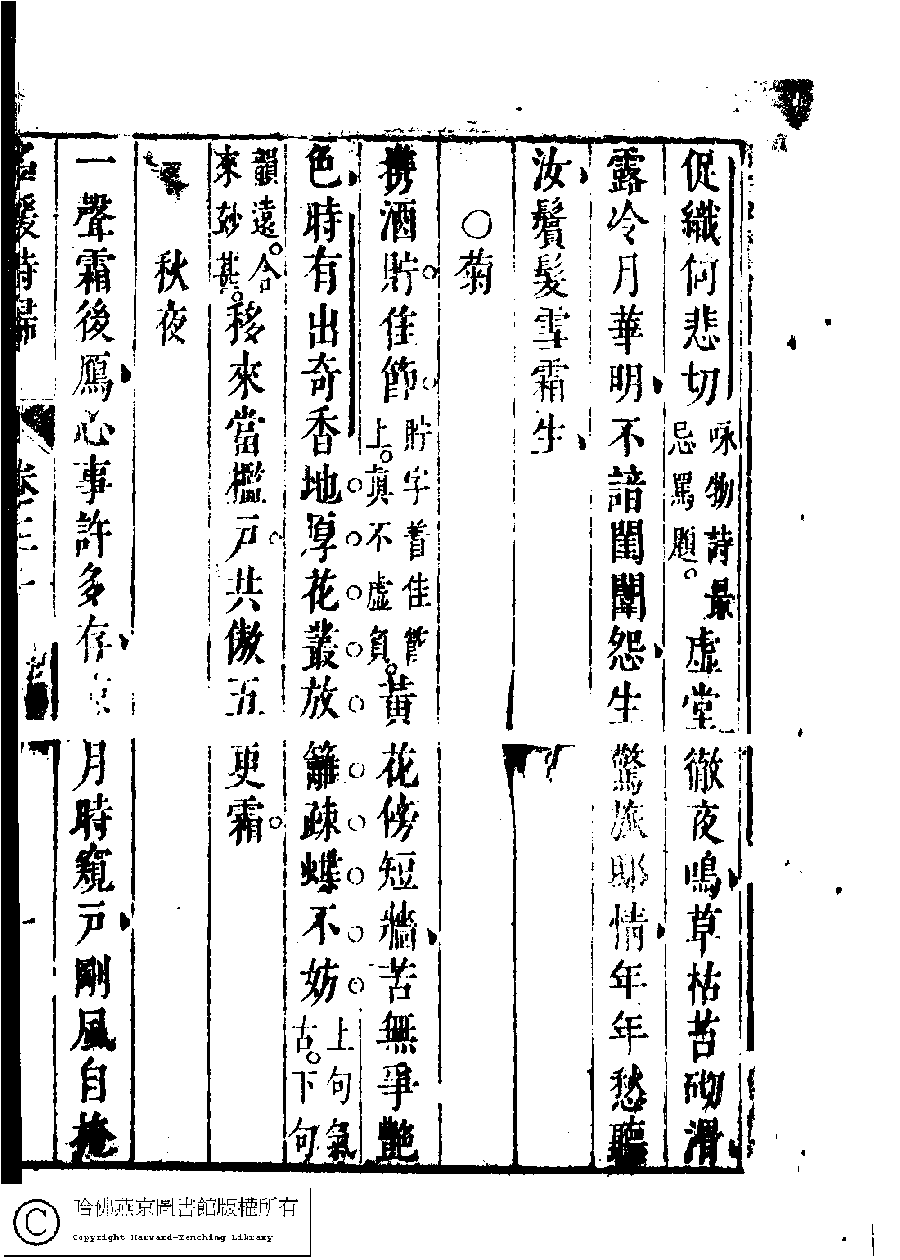 促織何悲切咏物詩最忌罵題虛堂徹夜鳴草枯苔砌滑
露冷月華明不諳閨闈怨生驚旅邸情年年愁聽
汝鬢髮雪霜生
○菊
携酒貯佳節貯字着佳節上真不虛負黃花傍短牆苦無爭艷
色時有出奇香地厚花叢放籬疎蝶不妨上句氣古下句
韻遠合來妙甚移來當檻戶共傲五更霜
秋夜
一聲霜後鴈心事許多存月時窺戶剛風自掩
名媛詩歸
卷三十
一
哈佛燕京圖書館版權所有
Copyright Harvard-Yenching Library